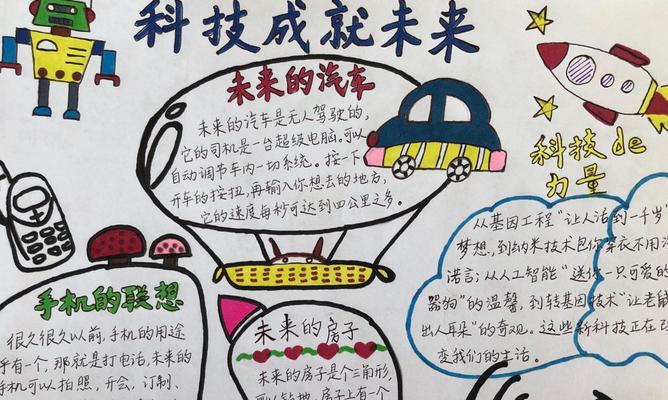 科技成就未来
未来的汽车
未来的汽车是无人驾驶的,
它的司机是一台超级电脑。可以
自动调节车内一切系统。按一下
开车的按扭,再输入你想去的地方,
它的速度每秒可达到四公里之多。
科技de
力量
从基因工程“让人活到一千岁”
梦想,到纳米技术包你穿衣不用洗
诺言;从人工智能“送你一只可爱的
器狗”的温馨,到转基因技术“让老鼠
出人耳朵”的奇观。这些新科技正在
变我们的生活。
手机的联想
很久很久以前,手机的用途
乎有一个,那就是打电话,未来的
手机可以拍照、开会、订制、
未来的房子
未来的房子是个三角形,
可以钻地,房子上有一个